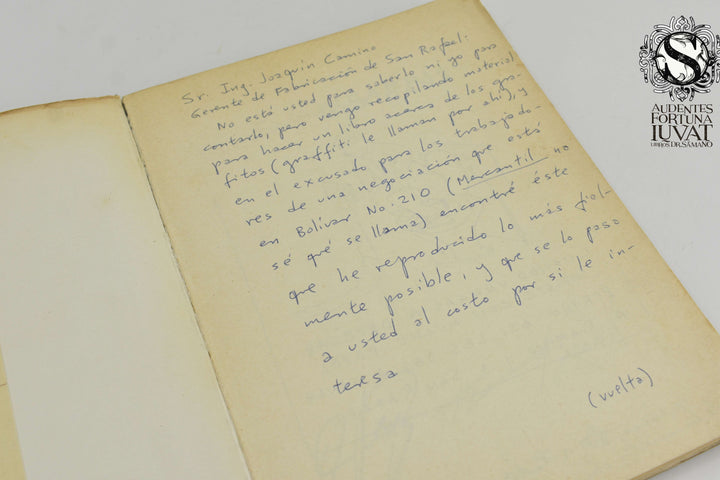 Sr. Ing. Joaquín Camino
Gerente de Fabricación de San Rafael:
No está usted para saberlo ni yo para
contarlo, pero vengo recopilando material
para hacer un libro acerca de los gra-
fitos (graffiti le llaman por ahí), y
en el excusado para los trabajado-
res de una negociación que está
en Bolívar No. 210 (Mercantil no
sé qué se llama) encontré éste
que he reproducido lo más fiel-
mente posible, y que se lo paso
a usted al costo por si le in-
teresa
(vuelta)
S
AUDENTES
FORTUNA
IUVAT
LIBROS DR. SÁMANO